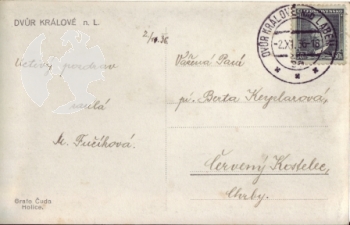 DVŮR KRÁLOVÉ n. L.
2/XI.36
Uctivý pozdrav
zasílá
M. Fučíková.
Vážená Paní
pí. Berta Keyplarová,
Červený Kostelec,
Chrby.
DVŮR KRÁLOVÉ
-2.XI.36-18
Bratři Čada
Holice.